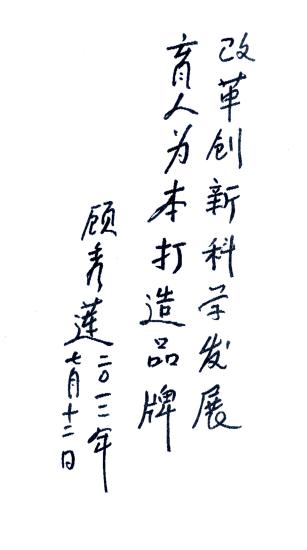 改革创新科学发展
育人为本打造品牌
顾秀莲
二〇一二年
七月十二日